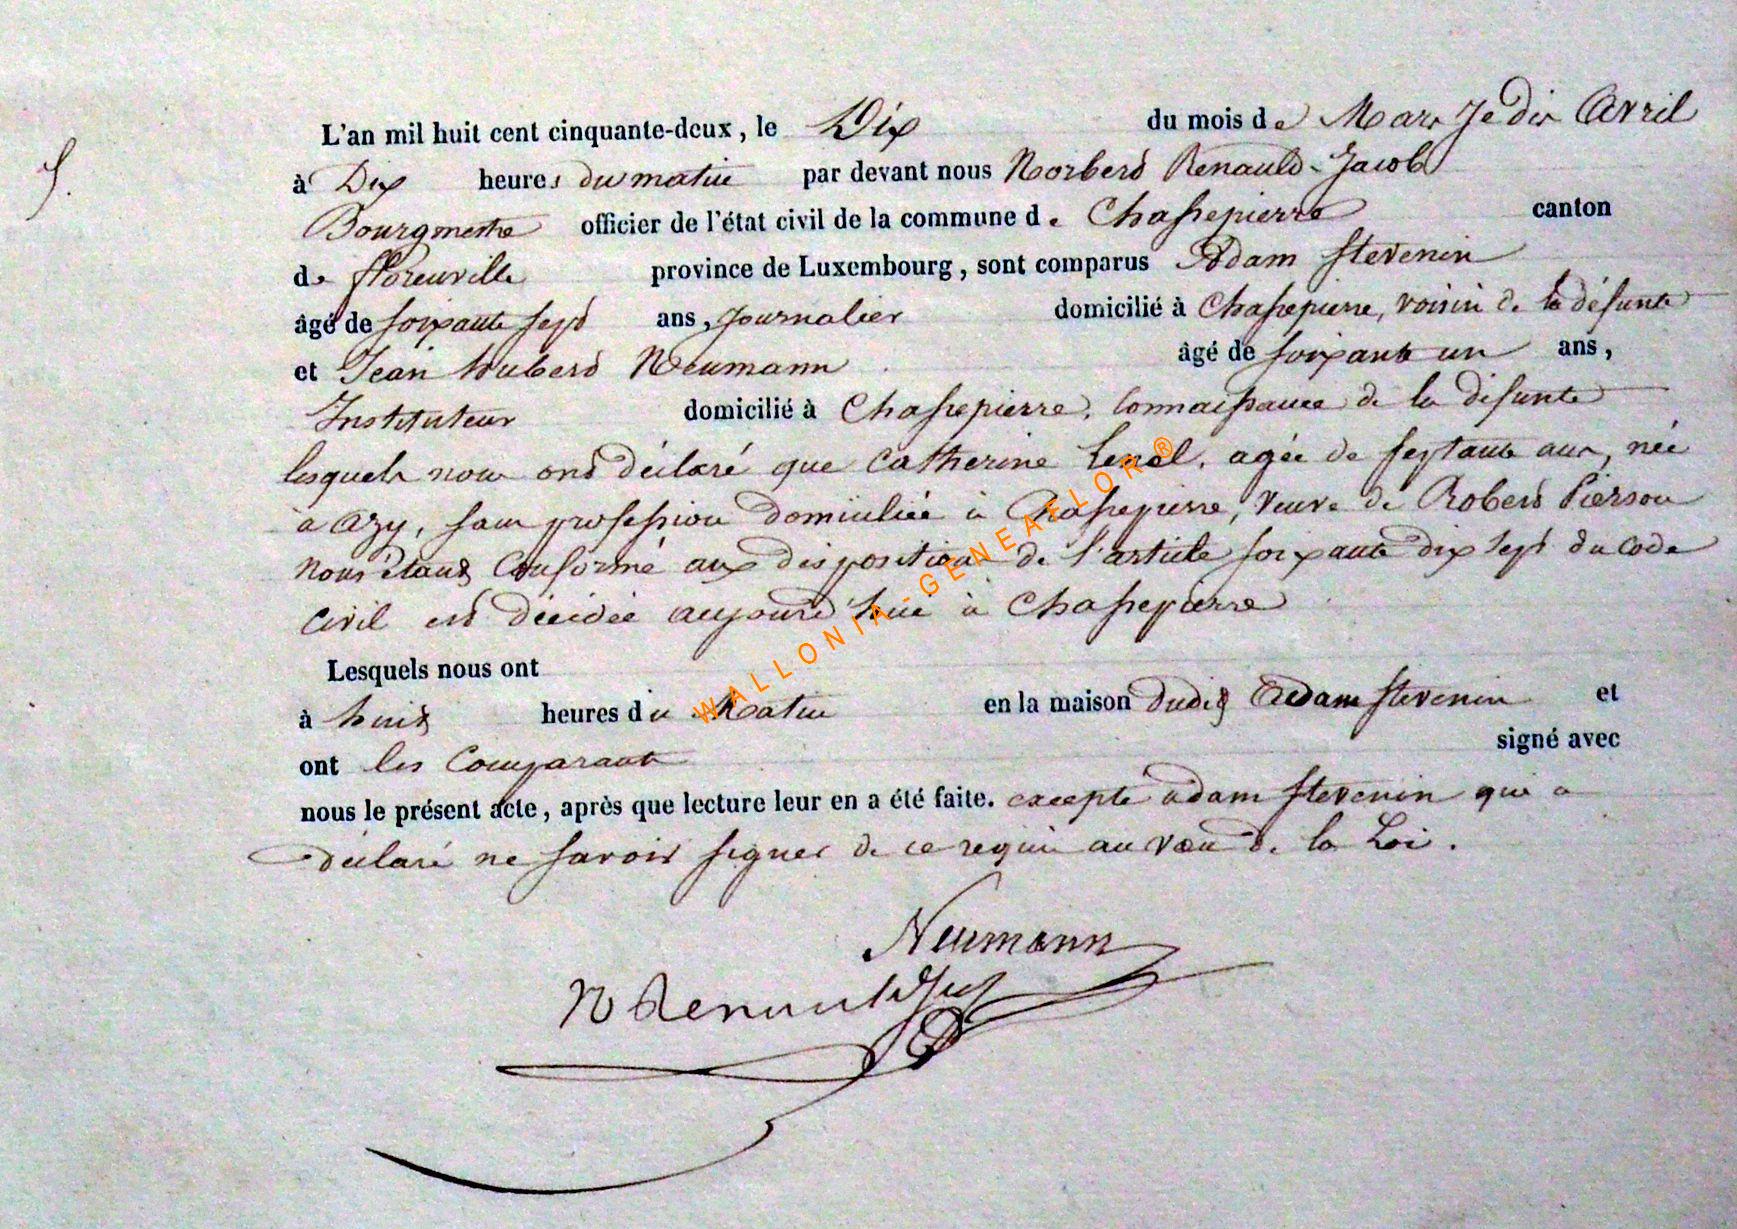 L'an mil huit cent cinquante-deux, le Dix du mois de Mars Je dis Avril
5.
à Dix heures du matin par devant nous Norbert Renauld-Jacob
Bourgmestre officier de l'état civil de la commune de Chassepierre canton
de florenville province de Luxembourg, sont comparus Adam Stevenin
âgé de soixante sept ans, Journalier domicilié à Chassepierre, voisin de la défunte
et Jean hubert Neumann âgé de soixante un ans,
Instituteur domicilié à Chassepierre, connaissance de la défunte
lesquels nous ont déclaré que Catherine, agée de septante ans, née
à Azy, sans profession domiciliée à Chassepierre, veuve de Robert Pierson
nous étant conformé aux dispositions de l'article soixante dix sept du code
civil est décédée aujourd'hui à Chassepierre
Lesquels nous ont
à huit heures du Matin en la maison dudit Adam Stevenin et
ont les comparants signé avec
nous le présent acte, après que lecture leur en a été faite. excepté adam Stevenin qui a
déclaré ne savoir signer de ce requis au vœu de la Loi.
Neumann
N Renauld
WALLONIA-GENEAFLOR®